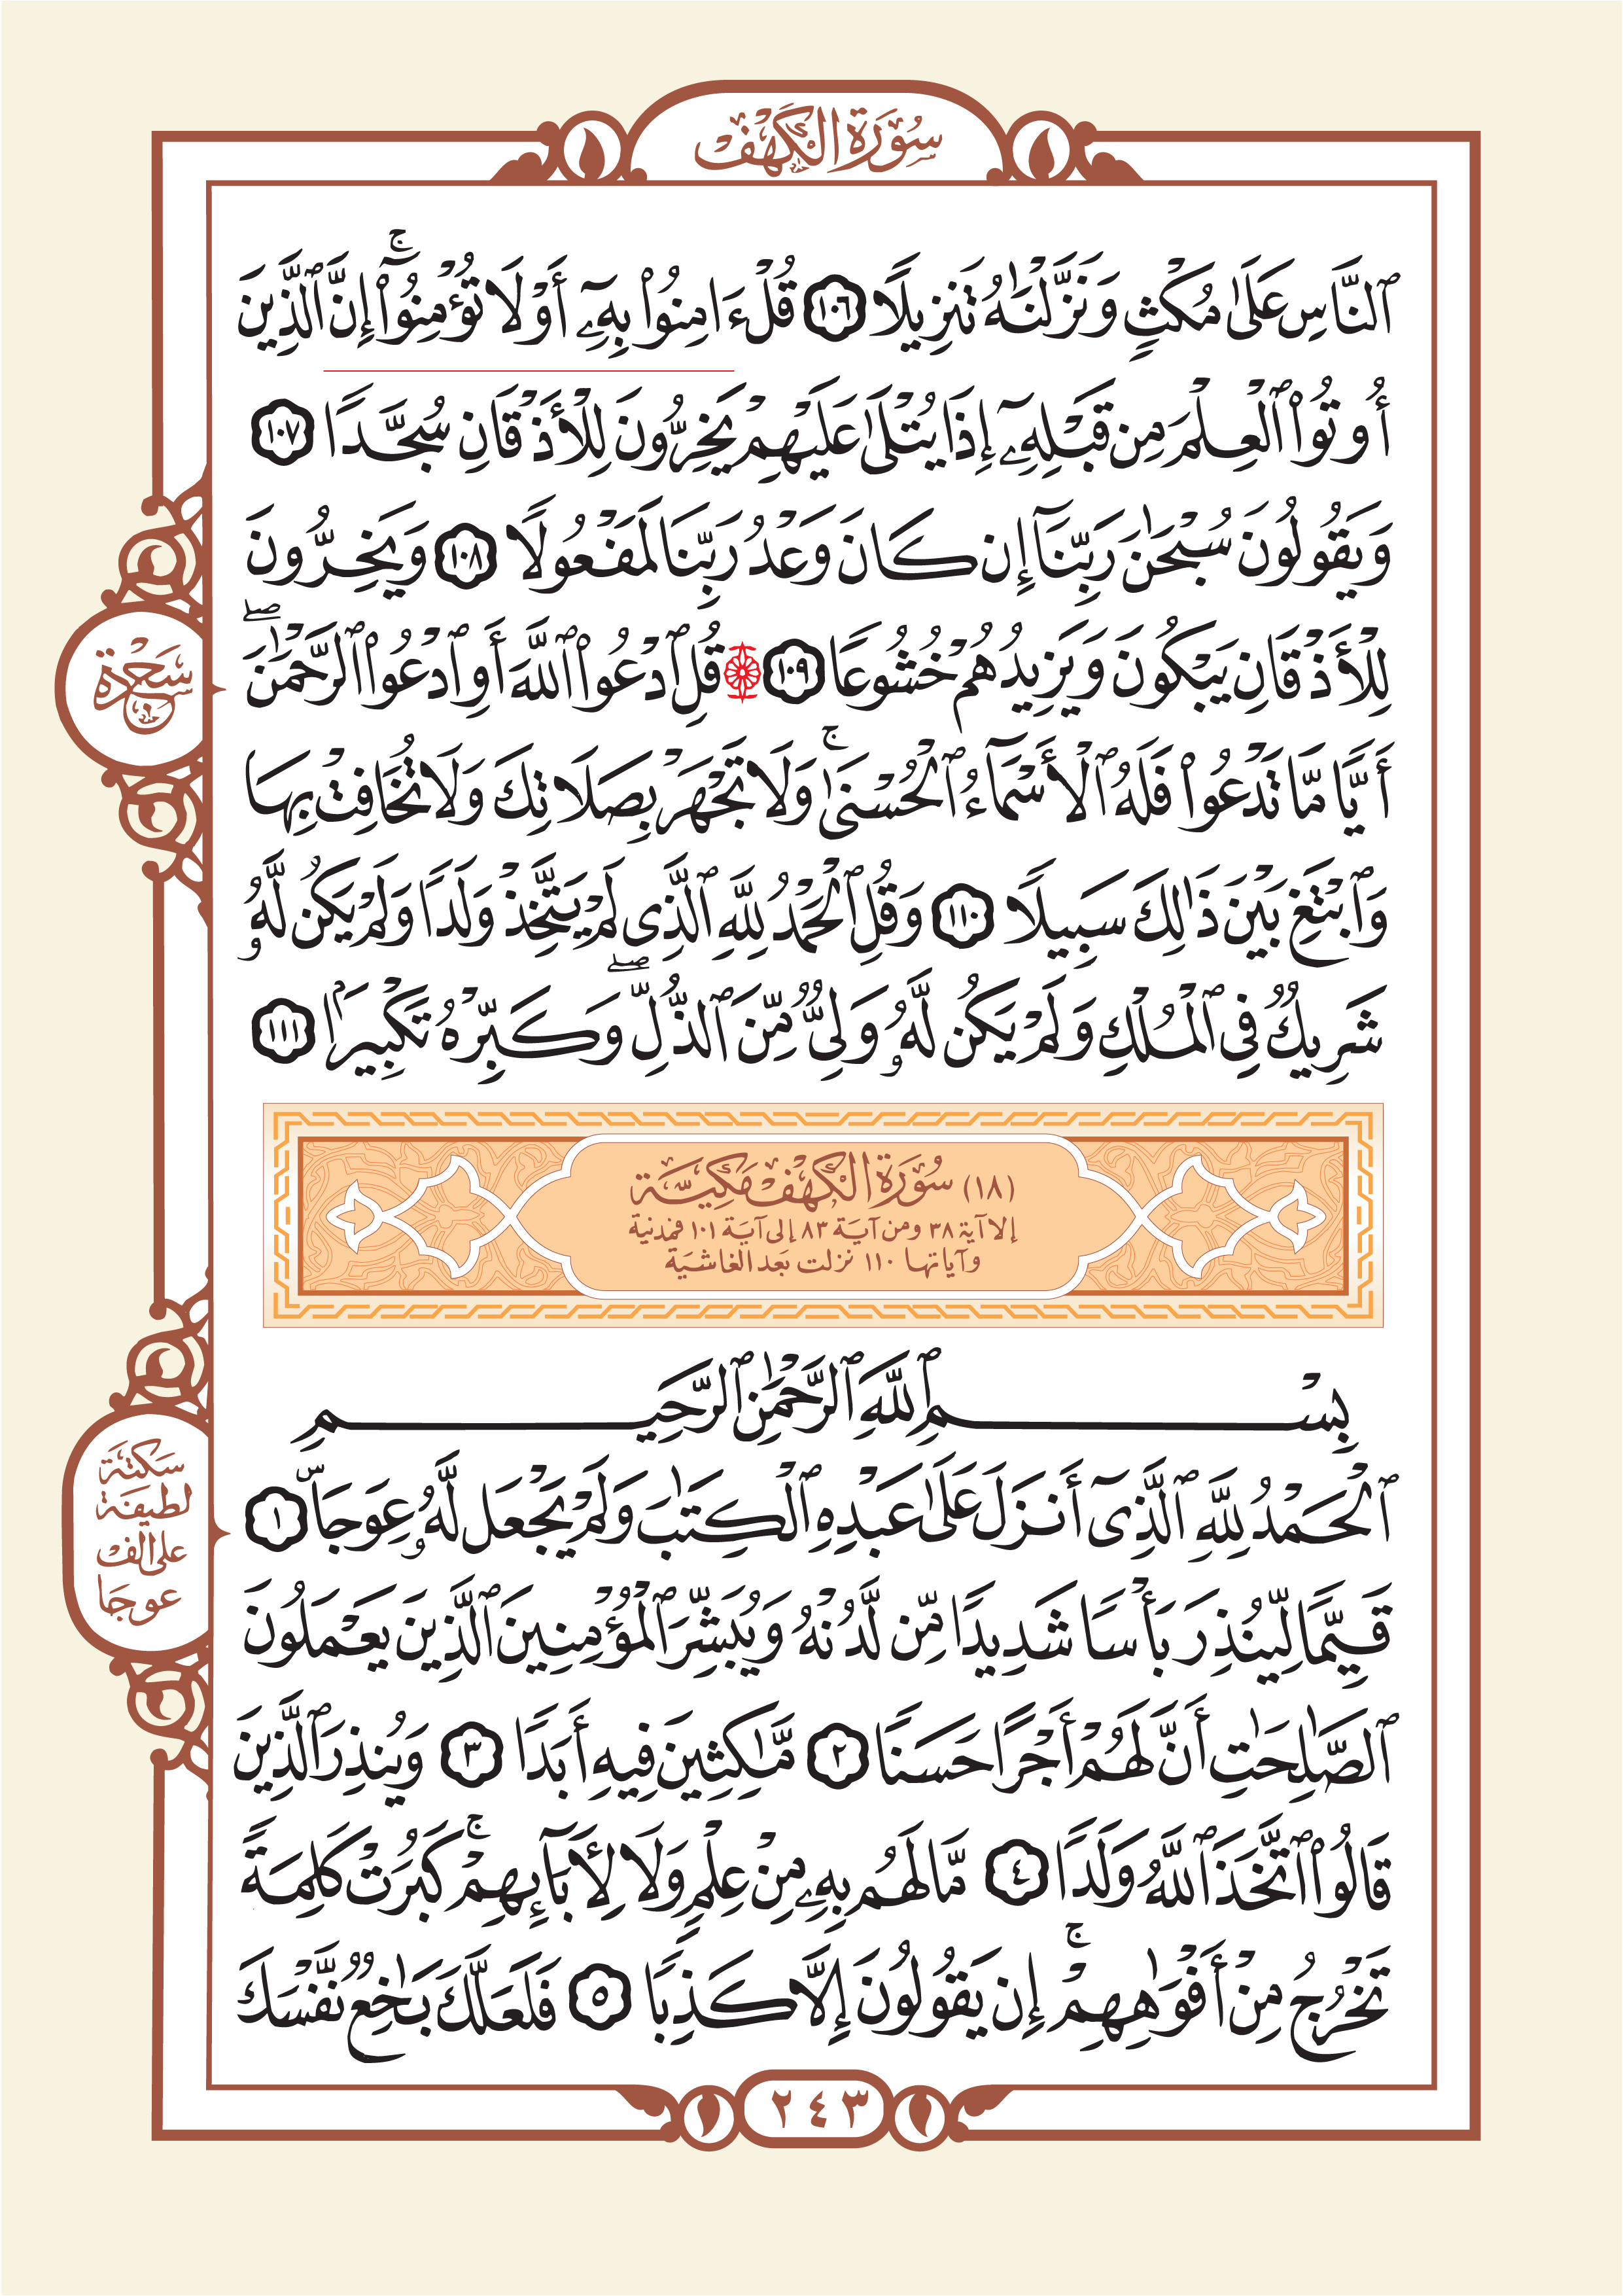 سُورَةُ الكَهْفِ
ٱلنَّاسِ عَلَىٰ مُكْثٍ وَنَزَّلْنَـٰهُ تَنزِيلًا ١٠٦ قُلْ ءَامِنُوا۟ بِهِۦٓ أَوْ لَا تُؤْمِنُوٓا۟ ۚ إِنَّ ٱلَّذِينَ
أُوتُوا۟ ٱلْعِلْمَ مِن قَبْلِهِۦٓ إِذَا يُتْلَىٰ عَلَيْهِمْ يَخِرُّونَ لِلْأَذْقَانِ سُجَّدًا ١٠٧
وَيَقُولُونَ سُبْحَـٰنَ رَبِّنَآ إِن كَانَ وَعْدُ رَبِّنَا لَمَفْعُولًا ١٠٨ وَيَخِرُّونَ
لِلْأَذْقَانِ يَبْكُونَ وَيَزِيدُهُمْ خُشُوعًا ١٠٩ قُلِ ٱدْعُوا۟ ٱللَّهَ أَوِ ٱدْعُوا۟ ٱلرَّحْمَـٰنَ ۖ
سَجْدَة
أَيًّا مَّا تَدْعُوا۟ فَلَهُ ٱلْأَسْمَآءُ ٱلْحُسْنَىٰ ۚ وَلَا تَجْهَرْ بِصَلَاتِكَ وَلَا تُخَافِتْ بِهَا
وَٱبْتَغِ بَيْنَ ذَٰلِكَ سَبِيلًا ١١٠ وَقُلِ ٱلْحَمْدُ لِلَّهِ ٱلَّذِى لَمْ يَتَّخِذْ وَلَدًا وَلَمْ يَكُن لَّهُۥ
شَرِيكٌ فِى ٱلْمُلْكِ وَلَمْ يَكُن لَّهُۥ وَلِىٌّ مِّنَ ٱلذُّلِّ ۖ وَكَبِّرْهُ تَكْبِيرًۢا ١١١
(١٨) سُورَةُ الكَهْفِ مَكِيَّة
إلا آية ٣٨ ومن آية ٨٣ إلى آية ١٠١ فمدنية
وآياتها ١١٠ نزلت بعد الغاشية
بِسْمِ ٱللَّهِ ٱلرَّحْمَـٰنِ ٱلرَّحِيمِ
ٱلْحَمْدُ لِلَّهِ ٱلَّذِىٓ أَنزَلَ عَلَىٰ عَبْدِهِ ٱلْكِتَـٰبَ وَلَمْ يَجْعَل لَّهُۥ عِوَجَاۜ ١
سكتة
لطيفة
على الف
عوجا
قَيِّمًا لِّيُنذِرَ بَأْسًا شَدِيدًا مِّن لَّدُنْهُ وَيُبَشِّرَ ٱلْمُؤْمِنِينَ ٱلَّذِينَ يَعْمَلُونَ
ٱلصَّـٰلِحَـٰتِ أَنَّ لَهُمْ أَجْرًا حَسَنًا ٢ مَّـٰكِثِينَ فِيهِ أَبَدًا ٣ وَيُنذِرَ ٱلَّذِينَ
قَالُوا۟ ٱتَّخَذَ ٱللَّهُ وَلَدًا ٤ مَّا لَهُم بِهِۦ مِنْ عِلْمٍ وَلَا لِأَبَآئِهِمْ ۚ كَبُرَتْ كَلِمَةً
تَخْرُجُ مِنْ أَفْوَٰهِهِمْ ۚ إِن يَقُولُونَ إِلَّا كَذِبًا ٥ فَلَعَلَّكَ بَـٰخِعٌ نَّفْسَكَ
٢٤٣